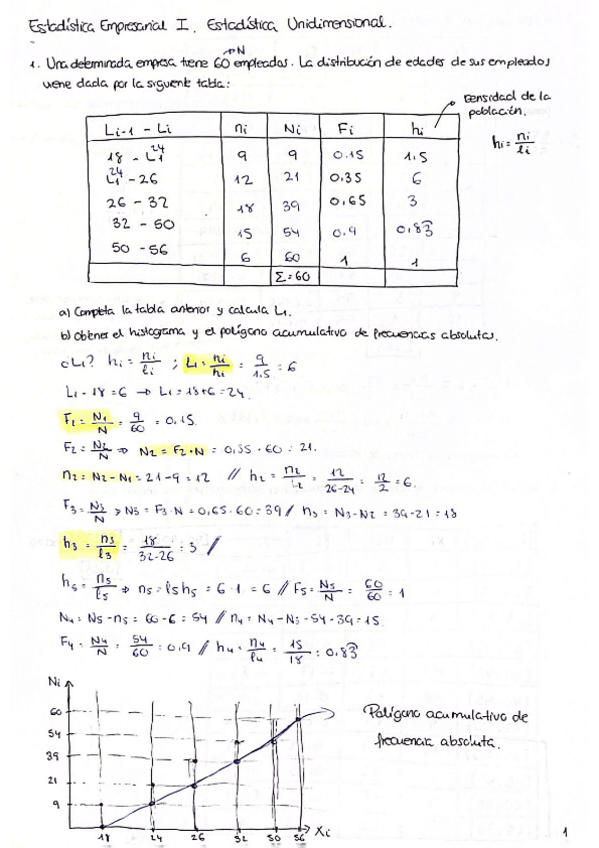 Estadística Empresarial I. Estadística Unidimensional.
→N
1. Una determinada empresa tiene 60 empleados. La distribución de edades de sus empleados
viene dada por la siguiente tabla:
densidad de la
población.
Li-1 - Li ni Ni Fi hi
hi = ni/li
18 - L1 24 9 9 0.15 1.5
L1 24 - 26 12 21 0.35 6
26 - 32 18 39 0.65 3
32 - 50 15 54 0.9 0.83
50 - 56 6 60 1 1
Σ=60
a) Completa la tabla anterior y calcula L1.
b) Obtener el histograma y el polígono acumulativo de frecuencias absolutas.
¿L1? hi = ni/li ; Li = ni/hi = 9/1.5 = 6
L1 - 18 = 6 → L1 = 18+6 = 24.
F1 = N1/N = 9/60 = 0.15.
F2 = N2/N ⇒ N2 = F2·N = 0.35 · 60 = 21.
n2 = N2 - N1 = 21 - 9 = 12 // h2 = n2/L2 = 12/26-24 = 12/2 = 6.
F3 = N3/N ⇒ N3 = F3·N = 0.65·60 = 39 / n3 = N3-N2 = 39-21 = 18
h3 = n3/l3 = 18/32-26 = 3 //
h5 = n5/l5 ⇒ n5 = l5 h5 = 6·1 = 6 // F5 = N5/N = 60/60 = 1
N4 = N5 - n5 = 60 - 6 = 54 // n4 = N4 - N3 = 54 - 39 = 15.
F4 = N4/N = 54/60 = 0.9 // h4 = n4/l4 = 15/18 = 0.83
Ni
60
54
39
21
9
18 24 26 32 50 56 Xi
Polígono acumulativo de
frecuencia absoluta.
1